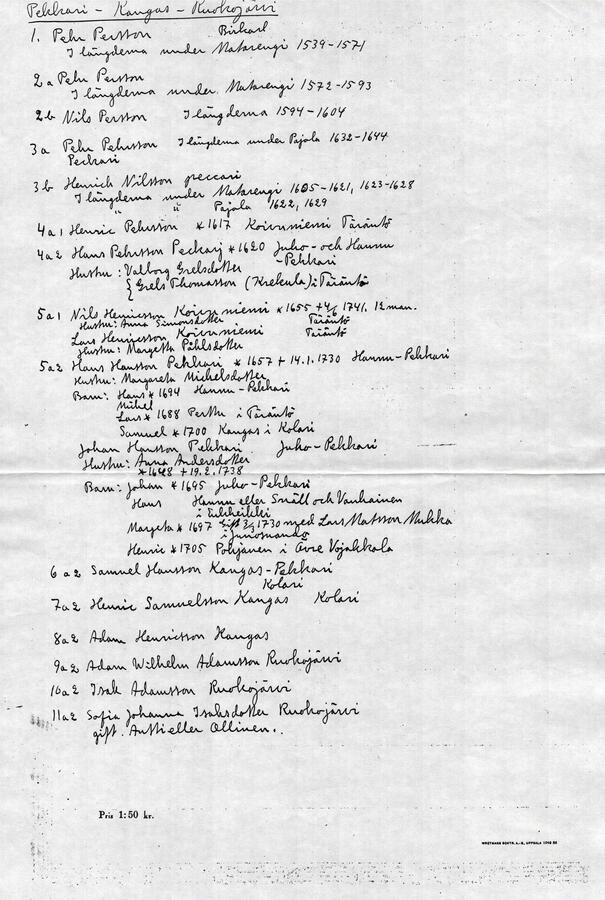 Pekkari - Kangas - Ruokojärvi
1. Pehr Persson Birkarl
I längderna under Matarengi 1539-1571
2a Pehr Persson
I längderna under Matarengi 1572-1593
2b Nils Persson I längderna 1594-1604
3a Pehr Pehrsson I längderna under Pajala 1632-1644
Peckari
3b Henrich Nilsson peccari
I längderna under Matarengi 1605-1621, 1623-1628
" " Pajala 1622, 1629
4a1 Henric Pehrsson *1617 Koivuniemi Täräntö
4a2 Hans Pehrsson Peckarj *1620 Juho- och Hannu
-Pekkari
Hustru: Valborg Grelsdotter
{ Grels Thomasson (Krekula) i Täräntö
5a1 Nils Henricsson Koivuniemi *1655 +4/6 1741. 12 man.
Hustru: Anna Simonsdotter Täräntö
Lars Henricsson Koivuniemi Täräntö
Hustru: Margetta Påhlsdotter
5a2 Hans Hansson Pekkari *1657 + 14.1.1730 Hannu-Pekkari
Hustru: Margareta Michelsdotter
Barn: Hans *1694 Hannu-Pekkari
Michel
Lars *1688 Perttu i Täräntö
Samuel *1700 Kangas i Kolari
Johan Hansson Pekkari Juho-Pekkari
Hustru: Anna Andersdotter
*1648 +19.2.1738
Barn: Johan *1695 Juho-Pekkari
Hans Hannu eller Snäll och Vanhainen
i
Margeta *1697 gift 1730 med Lars Matsson Mukka
i Junosuando
Henric *1705 Pohjanen i Övre Vojakkala
6a2 Samuel Hansson Kangas-Pekkari
Kolari
7a2 Henric Samuelsson Kangas Kolari
8a2 Adam Henricsson Kangas
9a2 Adam Wilhelm Adamsson Ruokojärvi
10a2 Isak Adamsson Ruokojärvi
11a2 Sofia Johanna Isaksdotter Ruokojärvi
gift. Antti eller Ollinen..
Pris 1:50 kr.
WRETMANS BOKTR. A.-B., UPPSALA 1946